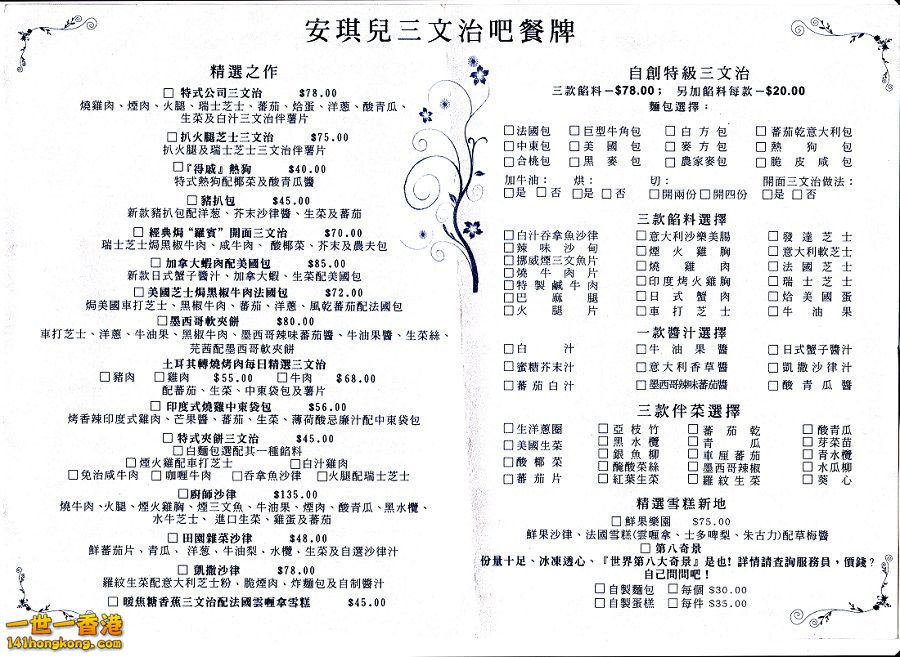 安琪兒三文治吧餐牌
精選之作
□ 特式公司三文治 $78.00
燒雞肉、煙肉、火腿、瑞士芝士、蕃茄、烚蛋、洋蔥、酸青瓜、
生菜及白汁三文治伴薯片
□ 扒火腿芝士三文治 $75.00
扒火腿及瑞士芝士三文治伴薯片
□『得戚』熱狗 $40.00
特式熱狗配椰菜及酸青瓜醬
□ 豬扒包 $45.00
新款豬扒包配洋蔥、芥末沙律醬、生菜及蕃茄
□ 經典焗“羅賓”開面三文治 $70.00
瑞士芝士焗黑椒牛肉、咸牛肉、酸椰菜、芥末及農夫包
□ 加拿大蝦肉配美國包 $85.00
新款日式蟹子醬汁、加拿大蝦、生菜配美國包
□ 美國芝士焗黑椒牛肉法國包 $72.00
焗美國車打芝士、黑椒牛肉、蕃茄、洋蔥、風乾蕃茄配法國包
□ 墨西哥軟夾餅 $80.00
車打芝士、洋蔥、牛油果、黑椒牛肉、墨西哥辣味蕃茄醬、牛油果醬、生菜絲、
芫茜配墨西哥軟夾餅
土耳其轉燒烤肉每日精選三文治
□ 豬肉 □ 雞肉 $55.00 □ 牛肉 $68.00
配蕃茄、生菜、中東袋包及薯片
□ 印度式燒雞中東袋包 $56.00
烤香辣印度式雞肉、芒果醬、蕃茄、生菜、薄荷酸忌廉汁配中東袋包
□ 特式夾餅三文治 $45.00
□ 白麵包選配其一種餡料
□ 煙火雞配車打芝士 □ 白汁雞肉
□ 免治咸牛肉 □ 咖喱牛肉 □ 吞拿魚沙律 □ 火腿配瑞士芝士
□ 廚師沙律 $135.00
燒牛肉、火腿、煙火雞胸、煙三文魚、牛油果、煙肉、酸青瓜、黑水欖、
水牛芝士、進口生菜、雞蛋及蕃茄
□ 田園雜菜沙律 $48.00
鮮蕃茄片、青瓜、洋蔥、牛油梨、水欖、生菜及自選沙律汁
□ 凱撒沙律 $78.00
羅紋生菜配意大利芝士粉、脆煙肉、炸麵包及自制醬汁
□ 暖焦糖香蕉三文治配法國雲喱拿雪糕 $45.00
自創特級三文治
三款餡料－$78.00； 另加餡料每款－$20.00
麵包選擇：
□ 法國包 □ 巨型牛角包 □ 白方包 □ 蕃茄乾意大利包
□ 中東包 □ 美國包 □ 麥方包 □ 熱狗包
□ 合桃包 □ 黑麥包 □ 農家麥包 □ 脆皮咸包
加牛油： 烘： 切： 開面三文治做法：
□ 是 □ 否 □ 是 □ 否 □ 開兩份 □ 開四份 □ 是 □ 否
三款餡料選擇
□ 白汁吞拿魚沙律 □ 意大利沙樂美腸 □ 發達芝士
□ 辣味沙甸 □ 煙火雞胸 □ 意大利軟芝士
□ 挪威煙三文魚片 □ 燒雞肉 □ 法國芝士
□ 燒牛肉片 □ 印度烤火雞胸 □ 瑞士芝士
□ 特製鹹牛肉 □ 日式蟹肉 □ 烚美國蛋
□ 巴麻腿 □ 車打芝士 □ 牛油果
□ 火腿片
一款醬汁選擇
□ 白汁 □ 牛油果醬 □ 日式蟹子醬汁
□ 蜜糖芥末汁 □ 意大利香草醬 □ 凱撒沙律汁
□ 蕃茄白汁 □ 墨西哥辣味蕃茄醬 □ 酸青瓜醬
三款伴菜選擇
□ 生洋蔥圈 □ 亞枝竹 □ 蕃茄乾 □ 酸青瓜
□ 美國生菜 □ 黑水欖 □ 青瓜 □ 芽菜苗
□ 酸椰菜 □ 銀魚柳 □ 車厘蕃茄 □ 青水欖
□ 蕃茄片 □ 醃酸菜絲 □ 墨西哥辣椒 □ 水瓜柳
□ 紅葉生菜 □ 羅紋生菜 □ 葵心
精選雪糕新地
□ 鮮果樂園 $75.00
鮮果沙律、法國雪糕(雲喱拿、士多啤梨、朱古力)配草梅醬
□ 第八奇景
份量十足、冰凍透心、『世界第八大奇景』是也! 詳情請查詢服務員，價錢？
自己問問吧！
□ 自製麵包 □ 每個 $30.00
□ 自製蛋糕 □ 每件 $35.00
一世一香港
141hongkong.com